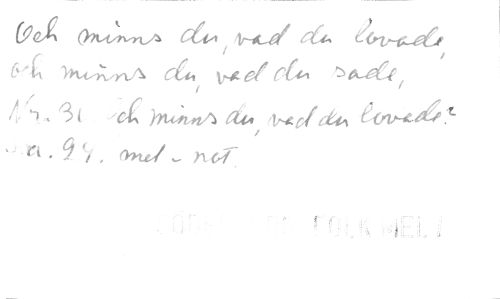 Och minns du, vad du lovade,
och minns du, vad du sade,
Nr. 31 Och minns du, vad du lovade?
24. mel - not.
FOLKMEL